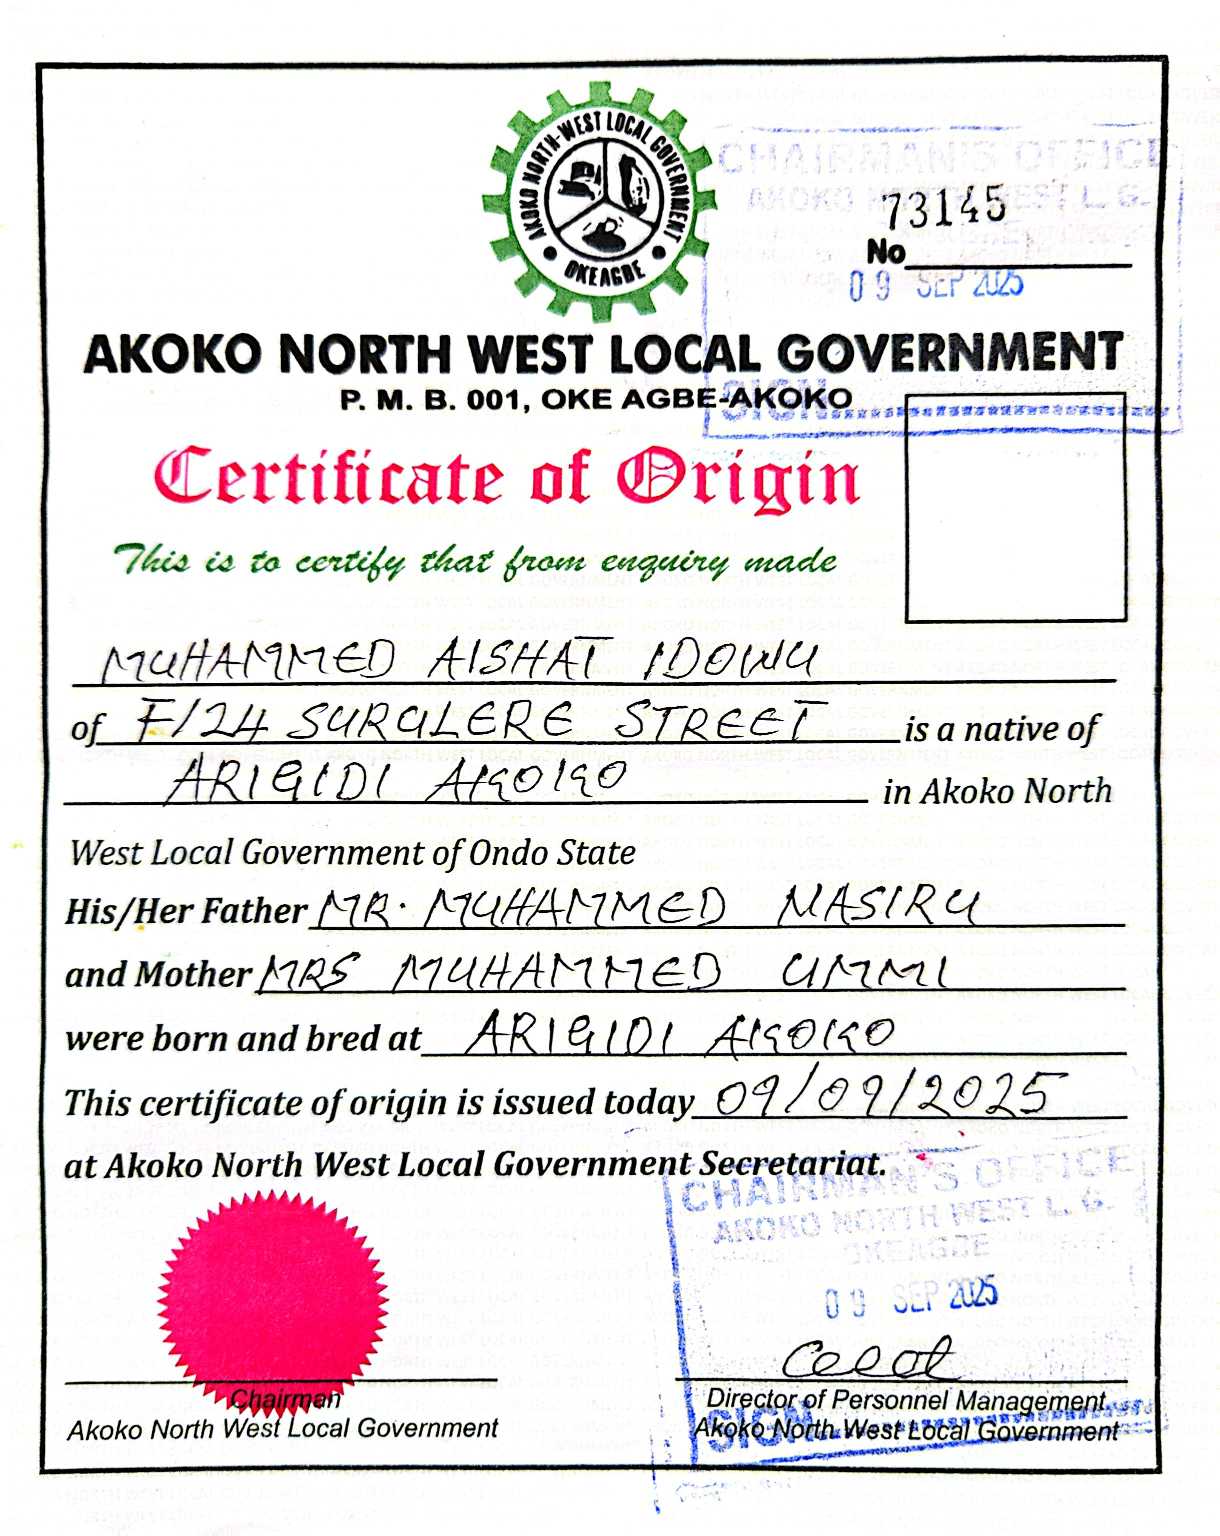 AKOKO NORTH-WEST LOCAL GOVERNMENT
OKEAGBE
CHAIRMAN'S OFFICE
AKOKO NORTH WEST L. G.
73145
No
09 SEP 2025
AKOKO NORTH WEST LOCAL GOVERNMENT
P. M. B. 001, OKE AGBE-AKOKO
SIGN
Certificate of Origin
This is to certify that from enquiry made
MUHAMMED AISHAT IDOWU
of F/24 SURULERE STREET is a native of
ARIGIDI AKOKO in Akoko North
West Local Government of Ondo State
His/Her Father MR. MUHAMMED NASIRU
and Mother MRS MUHAMMED UMMI
were born and bred at ARIGIDI AKOKO
This certificate of origin is issued today 09/09/2025
at Akoko North West Local Government Secretariat.
CHAIRMAN'S OFFICE
AKOKO NORTH WEST L. G.
OKEAGBE
09 SEP 2025
Chairman
Akoko North West Local Government
Director of Personnel Management
Akoko North West Local Government
SIGN